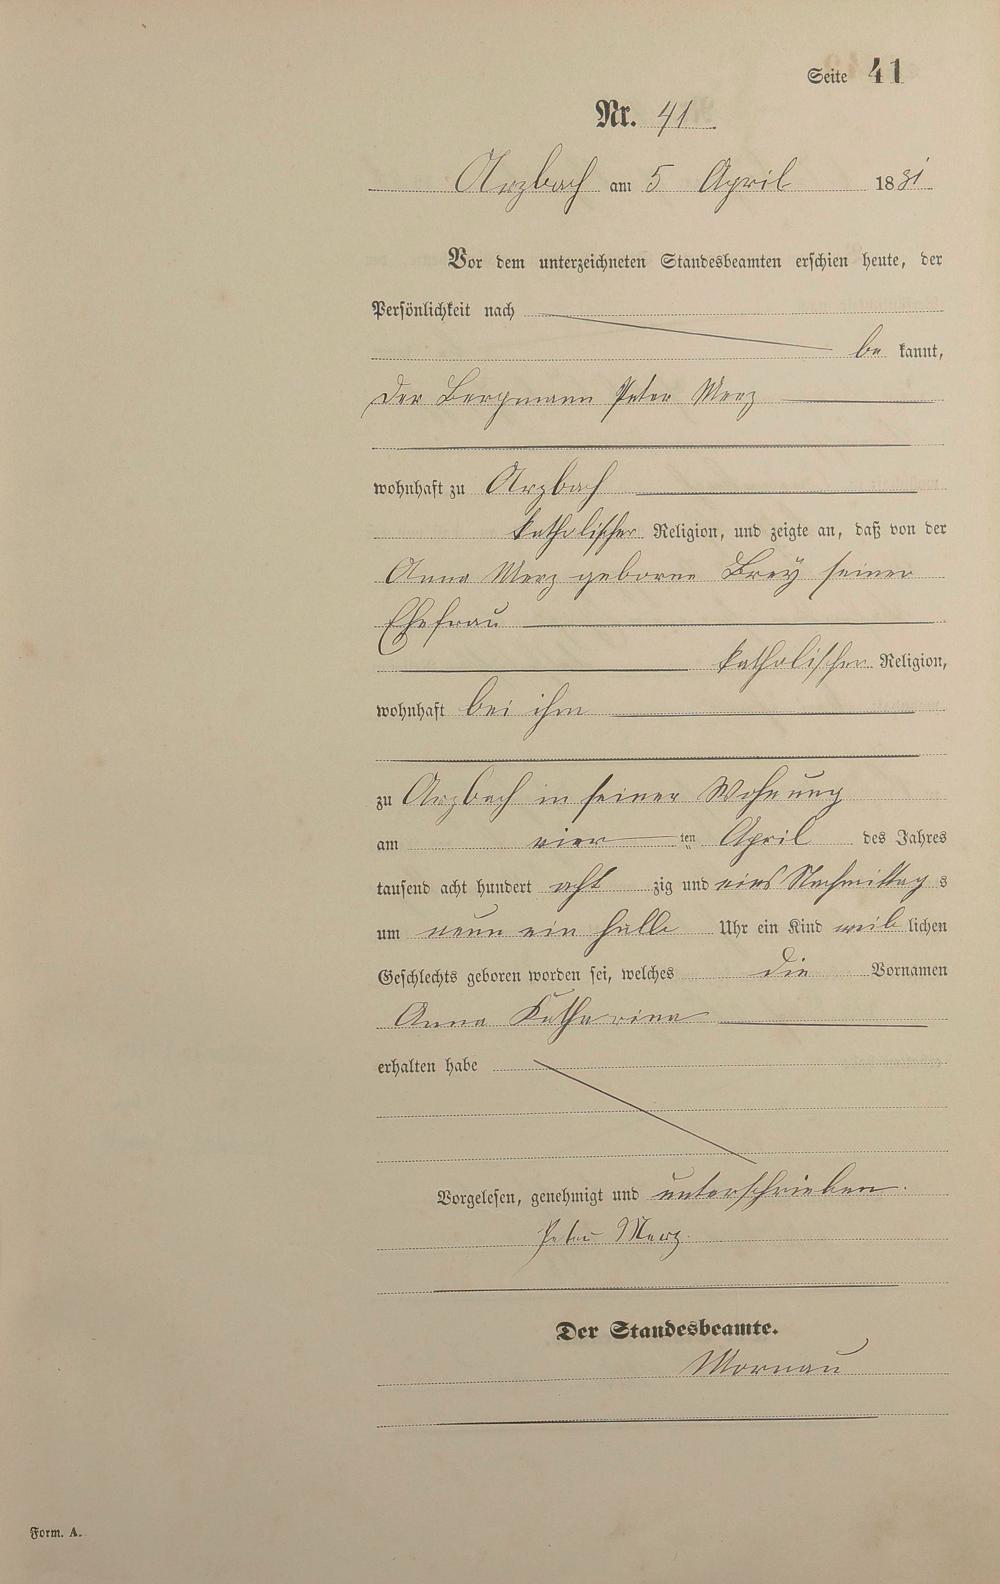 Seite 41
Nr. 41
Arzbach am 5 April 1881
Vor dem unterzeichneten Standesbeamten erschien heute, der
Persönlichkeit nach
be kannt,
der Bergmann Peter Merz
wohnhaft zu Arzbach
katholischer Religion, und zeigte an, daß von der
Anna Merz geborne Brey seiner
Ehefrau
katholischer Religion,
wohnhaft bei ihm
zu Arzbach in seiner Wohnung
am vier ten April des Jahres
tausend acht hundert acht zig und eins Nachmittag s
um neun ein halb Uhr ein Kind weib lichen
Geschlechts geboren worden sei, welches die Vornamen
Anna Katharina
erhalten habe
Vorgelesen, genehmigt und unterschrieben.
Peter Merz.
Der Standesbeamte.
Mornau
Form. A.